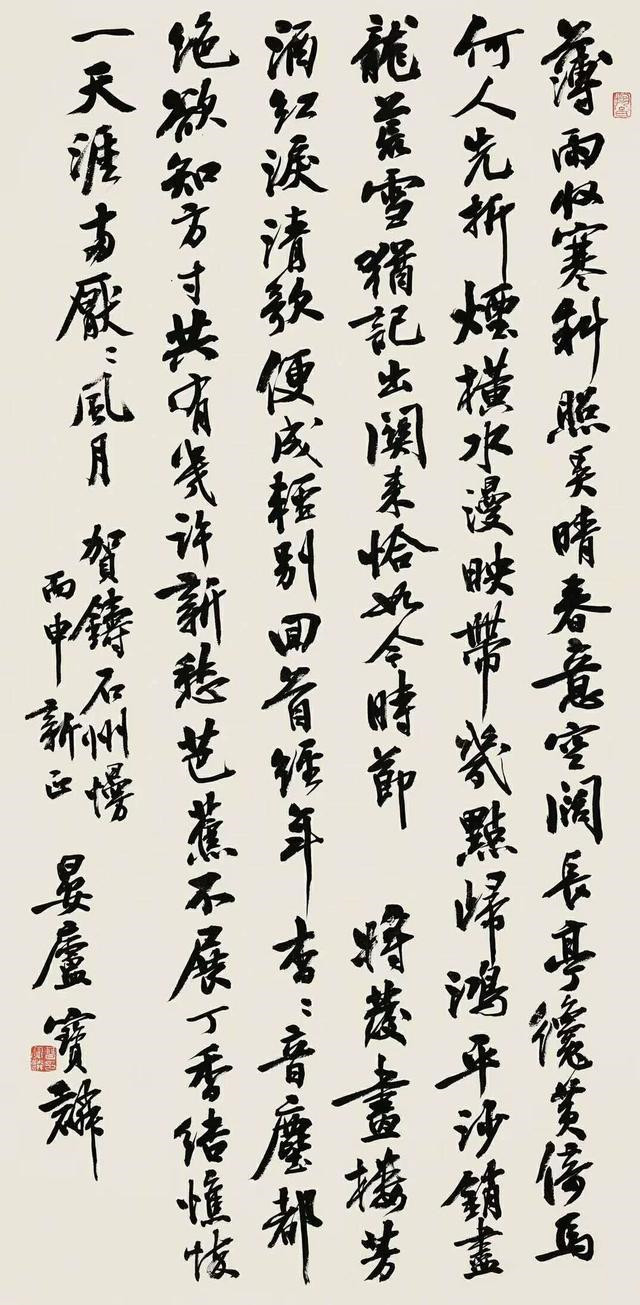 薄雨收寒斜照弄晴春意空闊長亭纔黄倚馬
何人先折煙橫水漫映帶幾點歸鴻平沙銷盡
龍荒雪猶記出關來恰如今時節 將發畫樓芳
酒紅淚清歌便成輕別回首經年杳〻音塵都
絶欲知方寸共有幾許新愁芭蕉不展丁香結憔悴
一天涯兩厭〻風月 賀鑄石州慢
丙申新正 晏廬寶麟